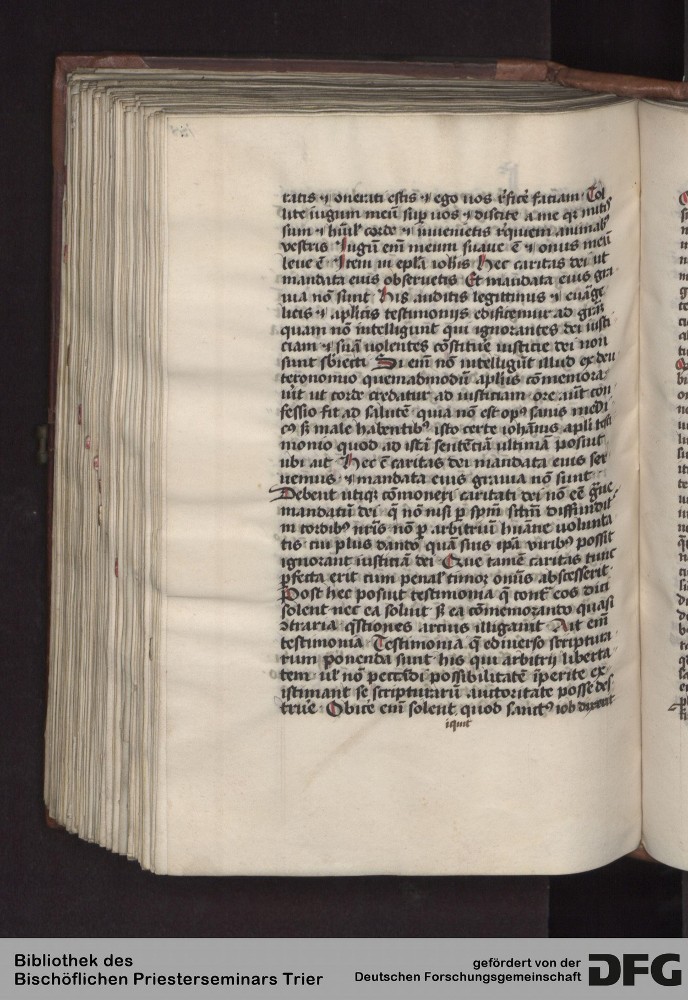 tatis ⁊ onerati estis ⁊ ego uos r̄fice̅ faciam Tol
lite iugum meū sup̱ uos ⁊ discite a me qr̄ mitis
sum ⁊ hūil' corde ⁊ inuenietis r̄quiem animab᷒
vestris Iugū em̄ meum suaue ē ⁊ onus meū
leue ē Item in ep̄la ioh̄is Hec caritas dei ut
mandata eius obseruetis Et mandata eius gra
uia nō sunt His auditis legittimis ⁊ euāge
licis ⁊ ap̄licis testimonijs edificemur ad gr̄am
quam nō intelligunt qui ignorantes dei iusti
ciam ⁊ suā uolentes cōstitue̅ iusticie dei non
sunt sbiecti Si em̄ nō intelligūt illud ex deu
teronomio quemadmodū ap̄l'us cōmemora
uit ut corde credatur ad iusticiam ore aūt con
fessio fit ad salutē quia nō est op᷒ sanis medi
c᷒ s; male habentib᷒ isto certe iohānis ap̄li testi
monio quod ad istā sentēciā ultimā posuit
ubi ait Hec ē caritas dei mandata eius ser
uemus ⁊ mandata eius grauia nō sunt
Debent utiq; cōmoneri caritati dei nō eē g̅ue
mandatū dei q̄ nō nisi p̱ sp̄m sc̄tm̄ diffundit᷑
in cordib᷒ nr̄is nō p̱ arbitriū humane uolunta
tis cui plus dando quā suis ip̄ā viribus possit
ignorant iusticiā dei Que tamē caritas tunc
p̱fecta erit cum penal' timor om̄is abscesserit
Post hec posuit testimonia q̄ cont᷑ eos dici
solent nec ea soluit s; ea cōmemorando quasi
ꝯtraria q̄stiones arcius illigauit Ait em̄
testimonia Testimonia q̄ ediuerso scriptura
rum ponenda sunt his qui arbitrij liberta
tem ul' nō pecc̄ādi possibilitatē īperite ex
istimant se scripturarū auctoritate posse des
true̅ Obice̅ em̄ solent quod sanct᷒ iob dixerit
iquit
Bibliothek des
Bischöflichen Priesterseminars Trier
gefördert von der
Deutschen Forschungsgemeinschaft
DFG